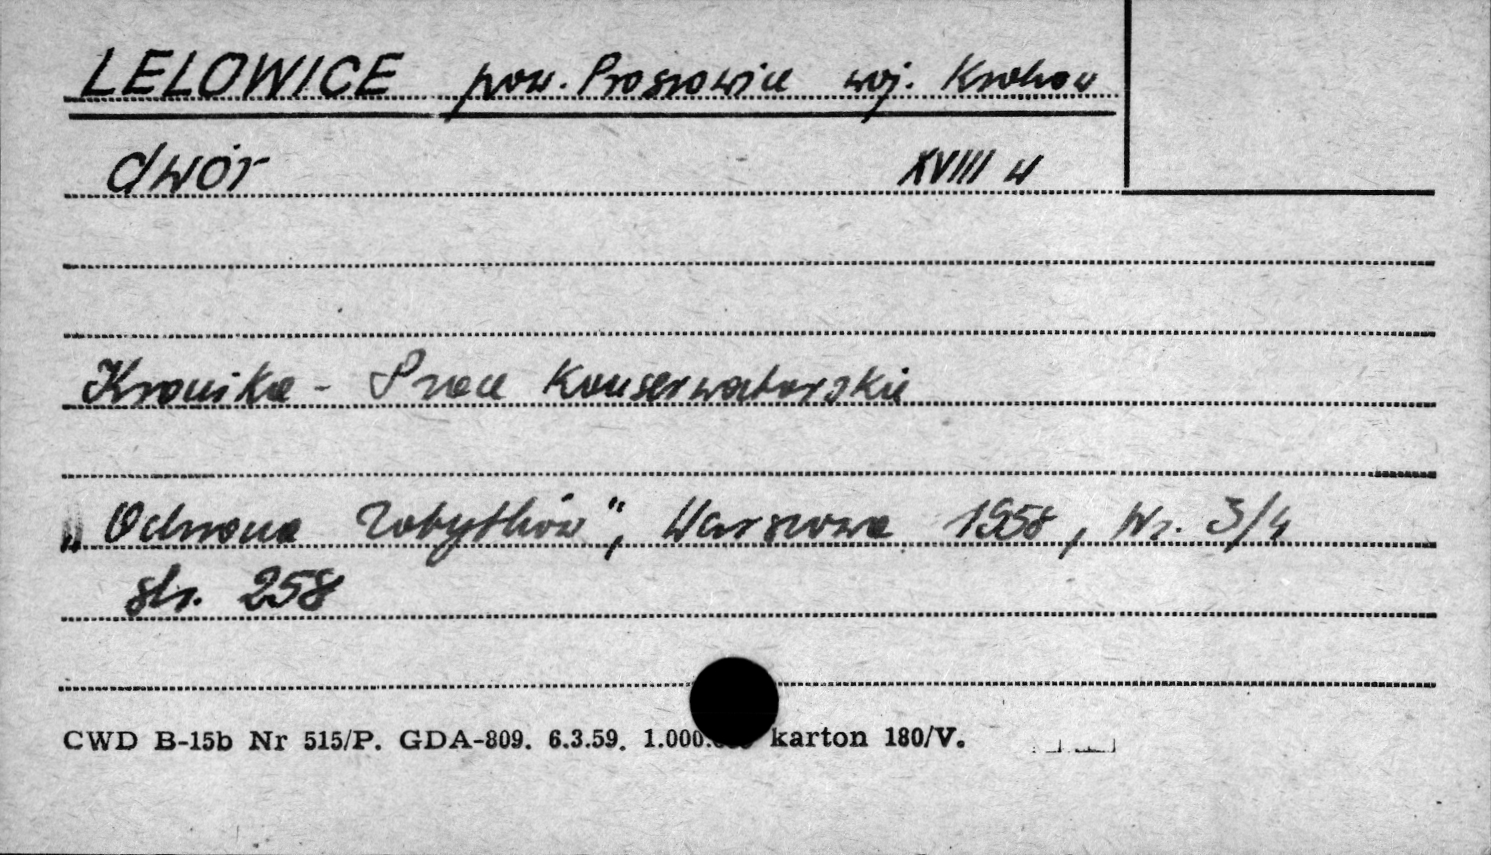 LELOWICE pow. Proszowice woj. Kraków
dwór XVIII w
Kronika - Prace Konserwatorskie
„Ochrona Zabytków", Warszawa 1958, Nr. 3/4
str. 258
CWD B-15b Nr 515/P. GDA-809. 6.3.59. 1.000.000 karton 180/V.